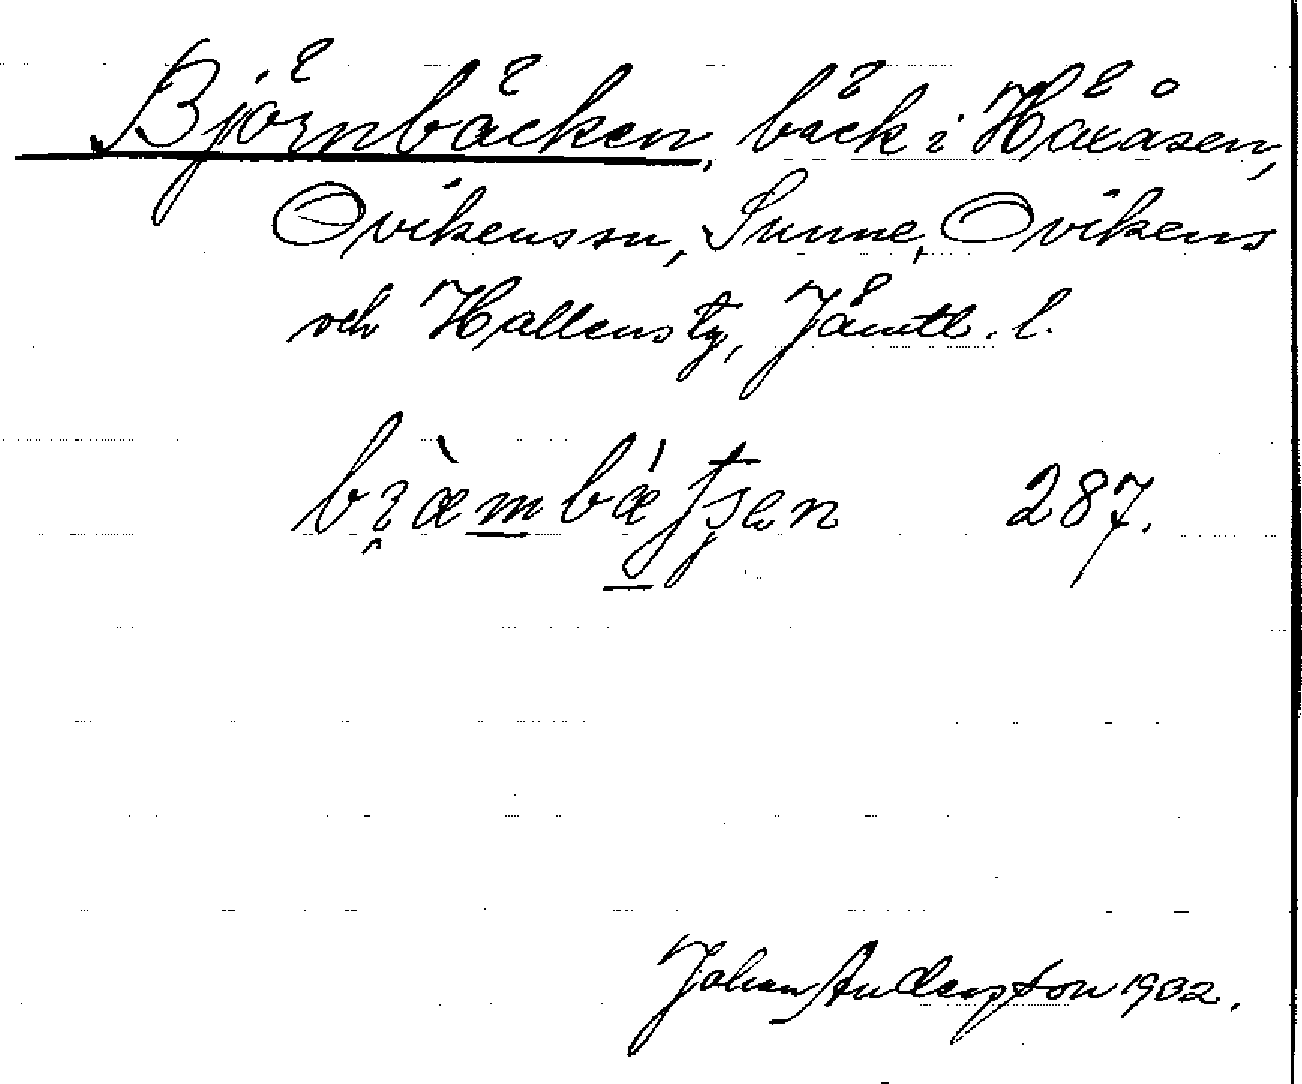 Björnbäcken, bäck i Häxåsen,
Ovikenssn, Sunne, Ovikens
och Hallens tg, Jämtl. l.
bràmbǽtsen 287.
Johan Anderson 1902.